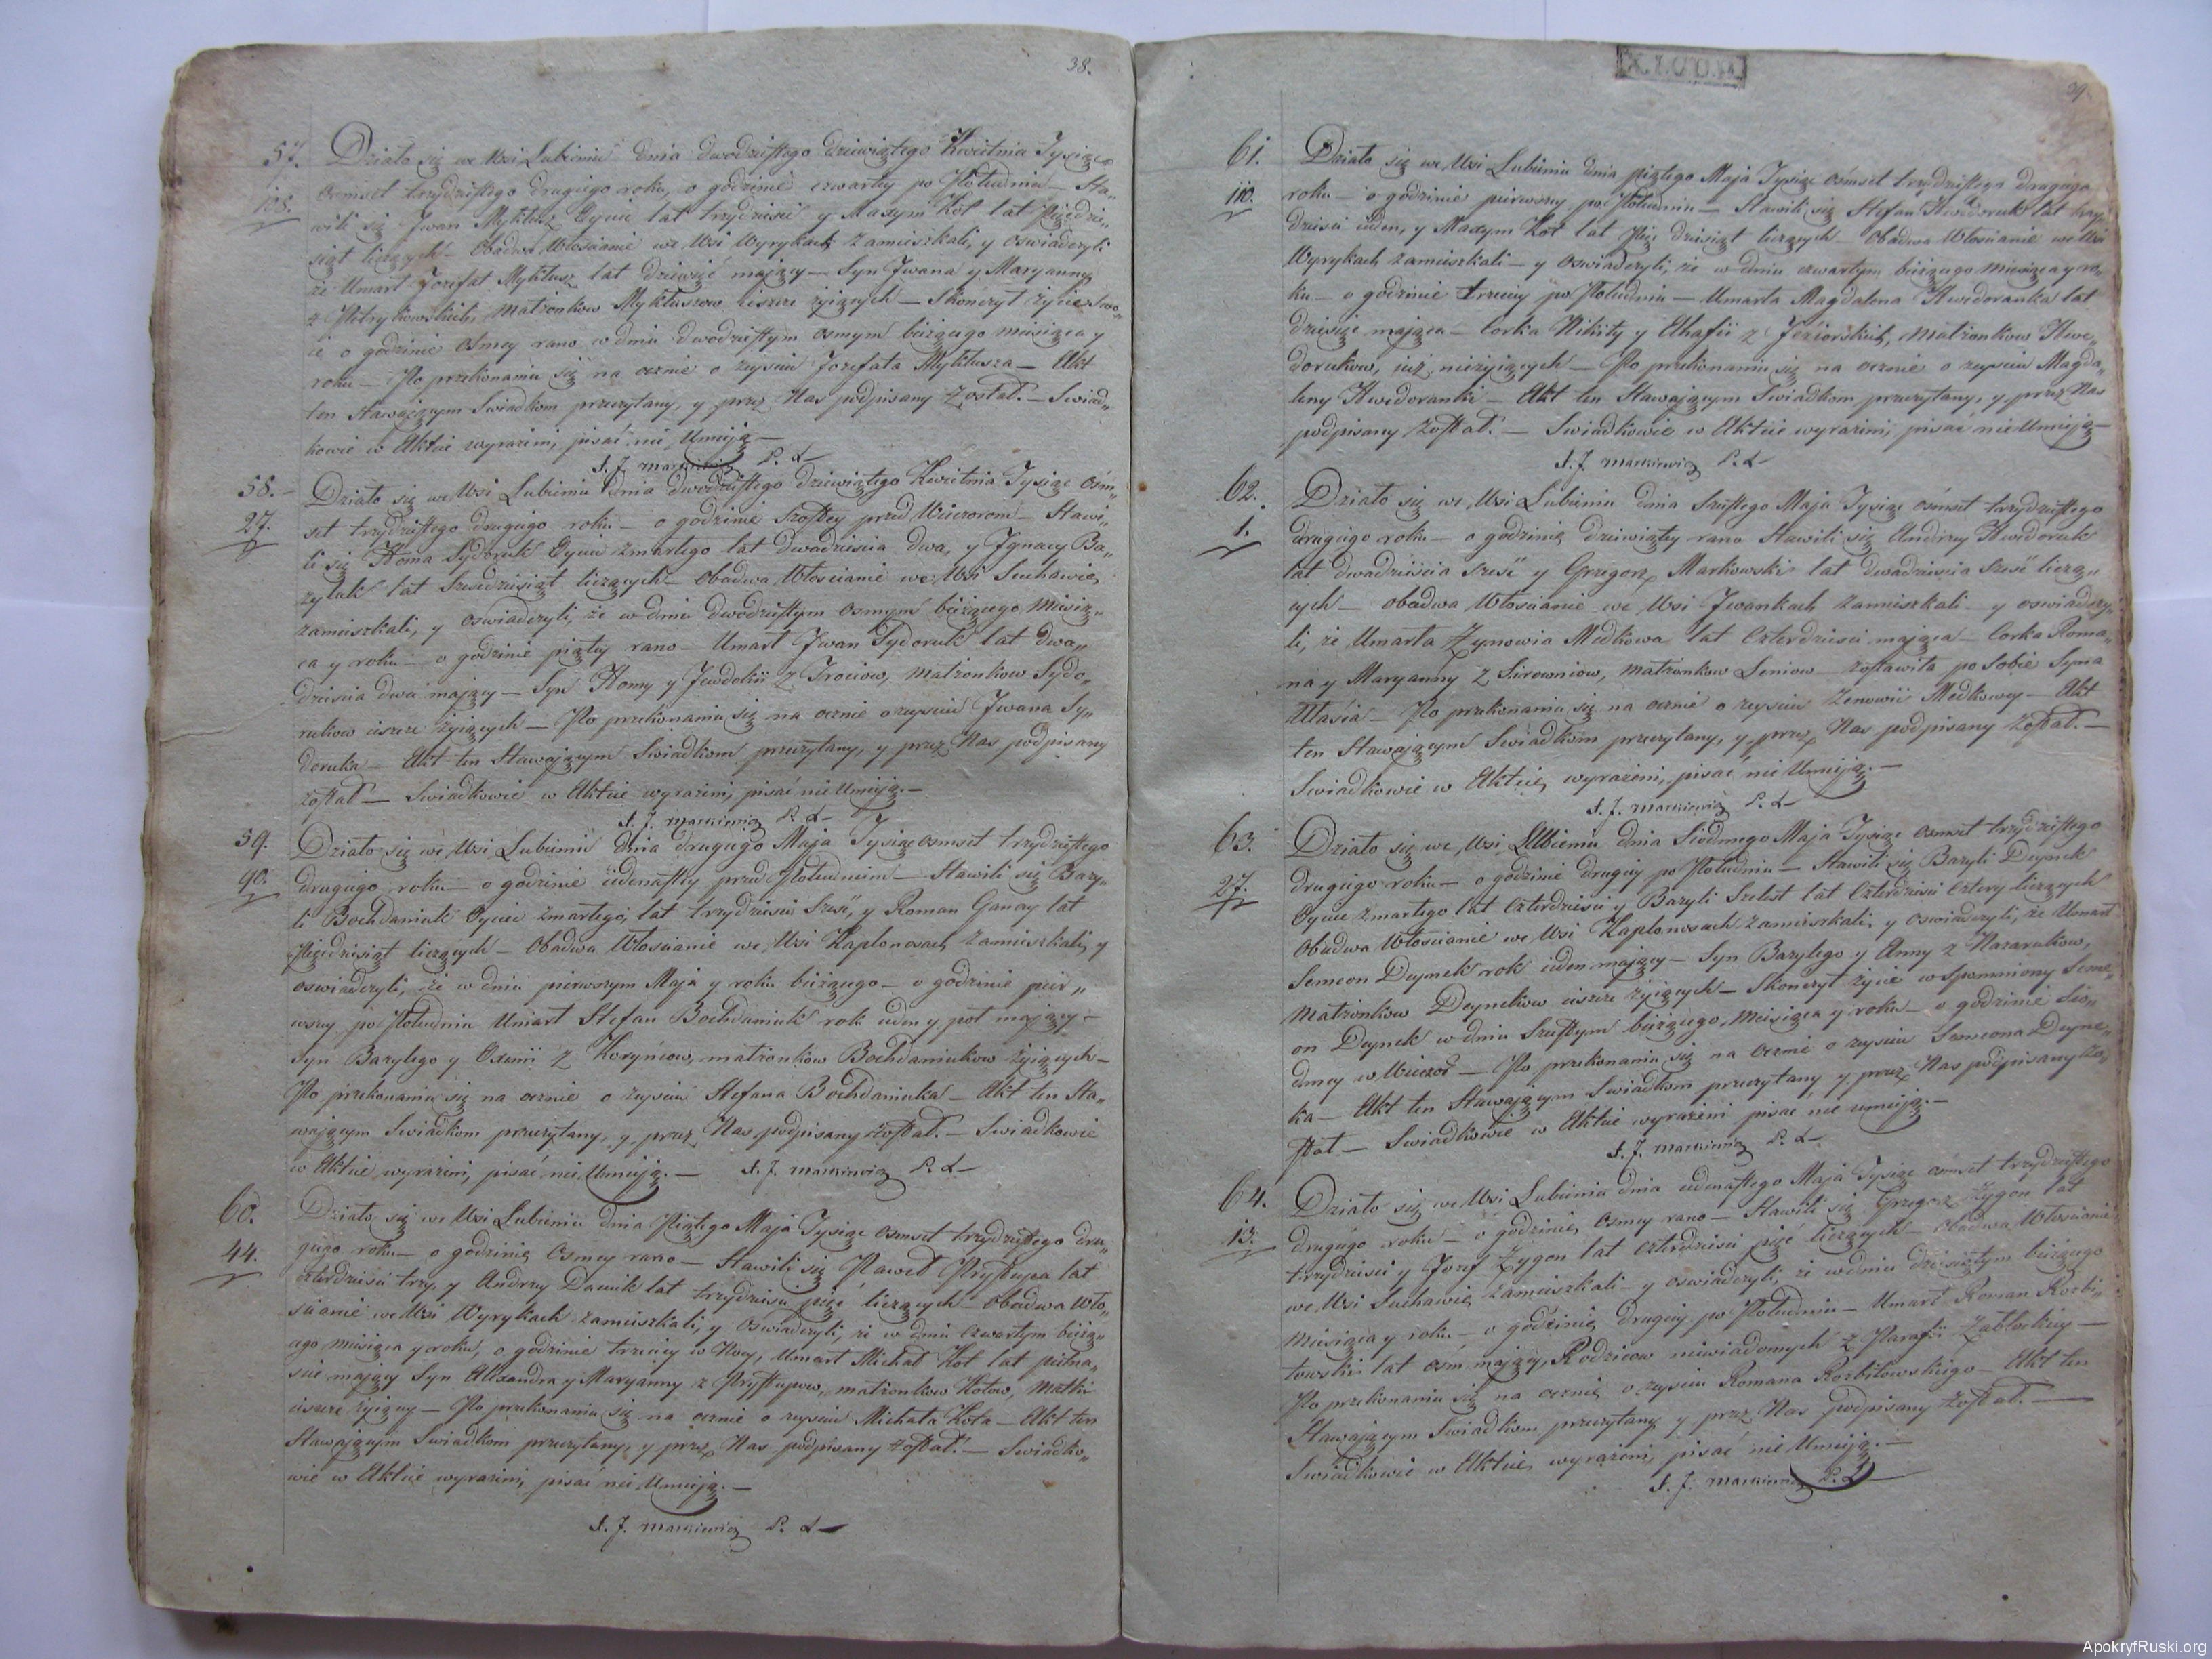 38.
57.
108.
Działo się we Wsi Lubieniu dnia dwódziestego dziewiątego Kwietnia Tysiąc
osmset trzydziestego drugiego roku, o godzinie czwartey po Południu — Sta„
wili się Jwan Mykłusz Oyciec lat trzydzieści y Maxym Kot lat Pięćdzie„
siąt liczących — Obadwa Włoscianie we Wsi Wyrykach zamieszkali, y oswiadczyli
że Umarł Jozefat Mykłusz lat dziewięć maiący — Syn Jwana y Maryanny
z Petrykowskich, Matzonkow Mykłuszow ieszcze żyiących — Skończył życie swo„
ie o godzinie Osmey rano w dniu dwodziestym osmym bieżącego miesiąca y
roku — Po przekonaniu się na ocznie o zeysciu Jozefata Mykłusza — Akt
ten Stawaiącym Swiadkom przeczytany, y przez Nas podpisany został. — Swiad„
kowie w Akcie wyrażeni, pisać nie Umieją —
X. J. Markiewicz P. L.
58.
27.
Działo się we Wsi Lubieniu dnia dwodziestego dziewiątego Kwietnia Tysiąc osm„
set trzydziestego drugiego roku — o godzinie szostey przed Wieczorem — Stawi„
li się Homa Sydoruk Oyciec zmarłego lat dwadziescia dwa, y Jgnacy Ba„
zyluk lat Szescdziesiąt liczących — Obadwa Włoscianie we Wsi Suchawie
zamieszkali, y oswiadczyli, że w dniu dwodziestym osmym bieżącego miesią„
ca y roku — o godzinie piątey rano — Umarł Jwan Sydoruk lat dwa„
dziescia dwa maiący — Syn Homy y Jewdokii z Trociow, matzonkow Sydo„
rukow ieszcze żyiących — Po przekonaniu się na ocznie o zeysciu Jwana Sy„
doruka — Akt ten Stawaiącym Swiadkom przeczytany, y przez Nas podpisany
został — Swiadkowie w Akcie wyrażeni, pisać nie Umieją. —
X. J. Markiewicz P. L.
59.
90.
Działo się we Wsi Lubieniu dnia drugiego Maja Tysiąc osmset trzydziestego
drugiego roku — o godzinie iedenastey przed Południem — Stawili się Bazy„
li Bochdaniuk Oyciec zmarłego, lat trzydziesci szesc, y Roman Ganay lat
Pięćdziesiąt liczących — Obadwa Włoscianie we Wsi Kaplonosach zamieszkali, y
oswiadczyli, że w dniu pierwszym Maja y roku bieżącego — o godzinie pier„
wszey po Południu Umarł Stefan Bochdaniuk rok ieden y poł maiący —
Syn Bazylego y Oxenii z Koryńcow, matzonkow Bochdaniukow żyiących —
Po przekonaniu się na ocznie o zeysciu Stefana Bochdaniuka — Akt ten Sta„
waiącym Swiadkom przeczytany, y przez Nas podpisany został. — Swiadkowie
w Akcie wyrażeni, pisać nie Umieją. — X. J. Markiewicz P. L.
60.
44.
Działo się we Wsi Lubieniu dnia Piątego Maja Tysiąc osmset trzydziestego dru„
giego roku — o godzinie Osmey rano — Stawili się Paweł Prystupa lat
czterdziesci trzy, y Andrzey Daniuk lat trzydziesci pięć liczących — Obadwa Wło„
scianie we Wsi Wyrykach zamieszkali, y Oswiadczyli, że w dniu czwartym bieżą„
cego miesiąca y roku, o godzinie trzeciey w Nocy, Umarł Michał Kot lat pietna„
scie maiący Syn Alexandra y Maryanny z Prystupow, matzonkow Kotow, Matki
ieszcze żyiącey — Po przekonaniu się na ocznie o zeysciu Michała Kota — Akt ten
Stawaiącym Swiadkom przeczytany, y przez Nas podpisany został. — Swiadko„
wie w Akcie wyrażeni, pisać nie Umieją. —
X. J. Markiewicz P. L.
39.
61.
110.
Działo się we Wsi Lubieniu dnia piątego Maja Tysiąc osmset trzydziestego drugiego
roku — o godzinie pierwszey po Południu — Stawili się Stefan Kwedoruk lat trzy„
dziesci ieden, y Maxym Kot lat Pięć dziesiąt liczących — Obadwa Włoscianie we Wsi
Wyrykach zamieszkali — y Oswiadczyli, że w dniu czwartym bieżącego miesiąca y ro„
ku — o godzinie trzeciey po Południu — Umarła Magdalena Kwedoranka lat
dziesięć maiąca — Corka Nikity y Ahafii z Jeziorskich, matzonkow Kwe„
dorukow, iuż nieżyiących — Po przekonaniu się na ocznie o zeysciu Magda„
leny Kwedoranki — Akt ten Stawaiącym Swiadkom przeczytany, y przez Nas
podpisany został. — Swiadkowie w Akcie wyrażeni, pisać nie Umieją —
X. J. Markiewicz P. L.
62.
1.
Działo się we Wsi Lubieniu dnia Szostego Maja Tysiąc osmset trzydziestego
drugiego roku — o godzinie dziewiątey rano Stawili się Andrzey Kwedoruk
lat dwadziescia szesc y Grzegorz Markowski lat dwadziescia szesc liczą„
cych — obadwa Włoscianie we Wsi Jwankach zamieszkali — y oswiadczy„
li, że Umarła Zynowia Medkowa lat Czterdziesci maiąca — Corka Roma„
na y Maryanny z Sirowniow, matzonkow Leniow — zostawiła po sobie Syna
Własia — Po przekonaniu się na ocznie o zeysciu Zenowii Medkowey — Akt
ten Stawaiącym Swiadkom przeczytany, y przez Nas podpisany został. —
Swiadkowie w Akcie wyrażeni, pisać nie Umieją. —
X. J. Markiewicz P. L.
63.
27.
Działo się we Wsi Lubieniu dnia Siodmego Maja Tysiąc osmset trzydziestego
drugiego roku — o godzinie drugiey po Południu — Stawili się Bazyli Deynek
Oyciec zmarłego lat Czterdziesci y Bazyli Szelest lat Czterdziesci Cztery liczących
Obadwa Włoscianie we Wsi Kaplonosach zamieszkali, y oswiadczyli, że Umarł
Semeon Deynek rok ieden maiący — Syn Bazylego y Anny z Nazarukow,
matzonkow Deynekow ieszcze żyiących — Skonczył życie wspomniony Seme„
on Deynek w dniu Szostym bieżącego, Miesiąca y roku — o godzinie Sio„
dmey w Wieczor — Po przekonaniu się na ocznie o zeysciu Semeona Deyne„
ka — Akt ten Stawaiącym Swiadkom przeczytany y przez Nas podpisany zo„
stał — Swiadkowie w Akcie wyrażeni pisać nie umieją. —
X. J. Markiewicz P. L.
64.
13.
Działo się we Wsi Lubieniu dnia iedenastego Maja Tysiąc osmset trzydziestego
drugiego roku — o godzinie osmey rano — Stawili się Grzegorz Zygon lat
trzydziesci y Jozef Zygon lat czterdziesci pięć liczących — obadwa Włoscianie
we Wsi Suchawie zamieszkali — y oswiadczyli, że w dniu dziesiątym bieżącego
miesiąca y roku — o godzinie drugiey po Południu — Umarł Roman Rozbi„
towski lat osm maiący, Rodzicow niewiadomych z Parafii Zabłockiey —
Po przekonaniu się na ocznie o zeysciu Romana Rozbitowskiego — Akt ten
Stawaiącym Swiadkom przeczytany y przez Nas podpisany został. —
Swiadkowie w Akcie, wyrażeni, pisać nie Umieją. —
X. J. Markiewicz P. L.
ApokryfRuski.org